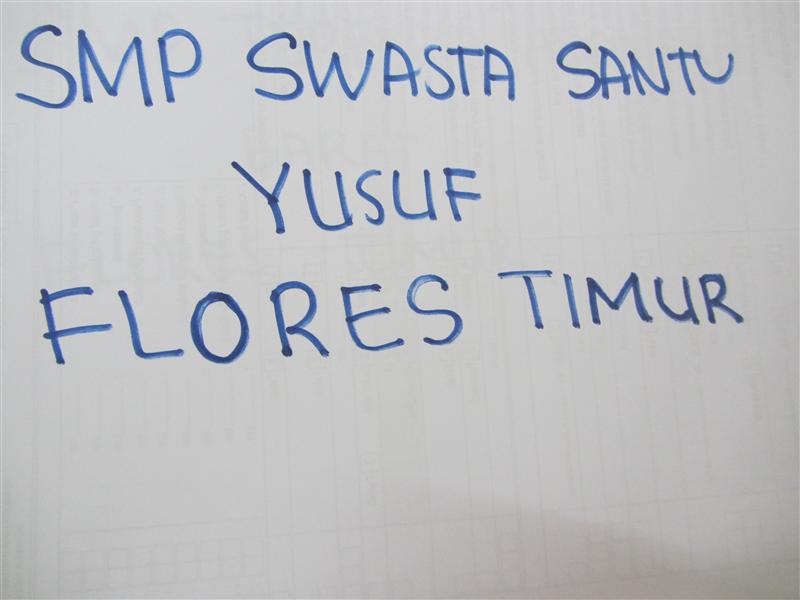 SMP SWASTA SANTU
YUSUF
FLORES TIMUR